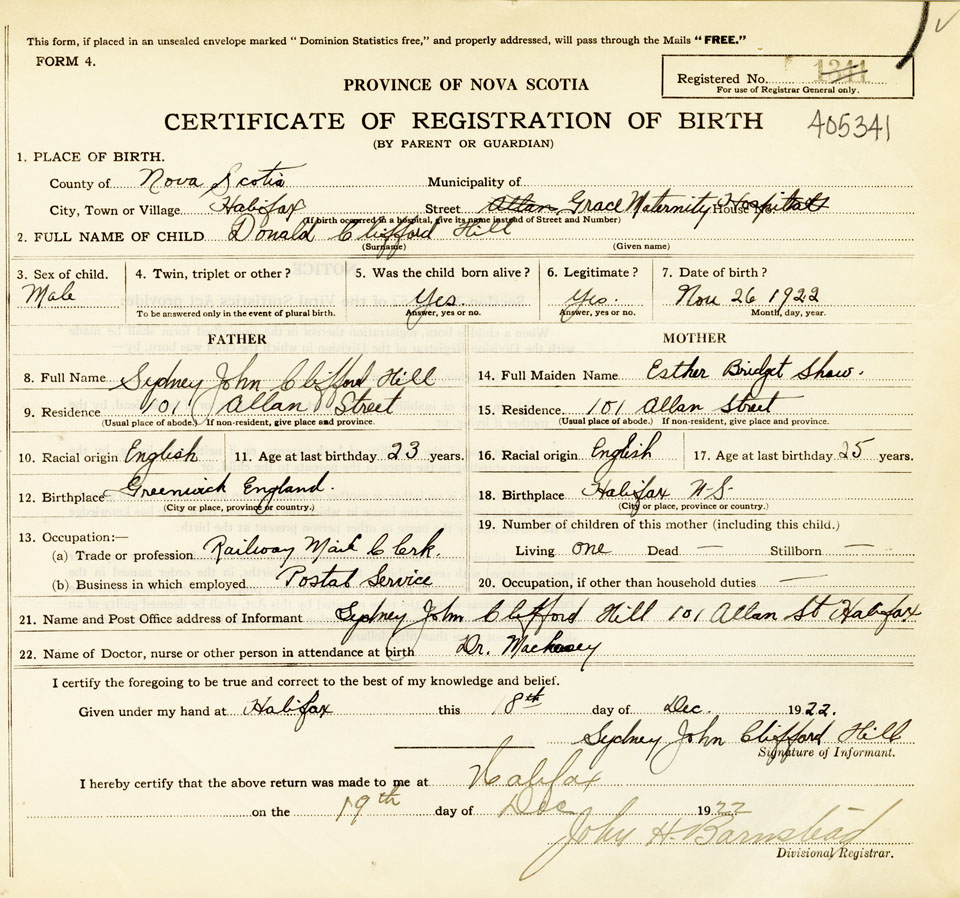 This form, if placed in an unsealed envelope marked "Dominion Statistics free," and properly addressed, will pass through the Mails "FREE."
FORM 4.
Registered No. 1341
For use of Registrar General only.
PROVINCE OF NOVA SCOTIA
CERTIFICATE OF REGISTRATION OF BIRTH 405341
(BY PARENT OR GUARDIAN)
1. PLACE OF BIRTH.
County of Nova Scotia Municipality of
City, Town or Village Halifax Street Allan Grace Maternity House No. Hospital
(If birth occurred in a hospital, give its name instead of Street and Number)
2. FULL NAME OF CHILD Donald Clifford Hill
(Surname) (Given name)
3. Sex of child. 4. Twin, triplet or other? 5. Was the child born alive? 6. Legitimate? 7. Date of birth?
Male Yes Yes. Nov 26 1922
To be answered only in the event of plural birth. Answer, yes or no. Answer, yes or no. Month, day, year.
FATHER
8. Full Name Sydney John Clifford Hill
9. Residence 101 Allan Street
(Usual place of abode.) If non-resident, give place and province.
10. Racial origin English 11. Age at last birthday 23 years.
12. Birthplace Greenwich England.
(City or place, province or country.)
13. Occupation:—
(a) Trade or profession Railway Mail Clerk.
(b) Business in which employed Postal Service
MOTHER
14. Full Maiden Name Esther Bridget Shaw.
15. Residence. 101 Allan Street
(Usual place of abode.) If non-resident, give place and province.
16. Racial origin English 17. Age at last birthday 25 years.
18. Birthplace Halifax N-S-
(City or place, province or country.)
19. Number of children of this mother (including this child.)
Living one Dead — Stillborn —
20. Occupation, if other than household duties —
21. Name and Post Office address of Informant Sydney John Clifford Hill 101 Allan St Halifax
22. Name of Doctor, nurse or other person in attendance at birth Dr.
I certify the foregoing to be true and correct to the best of my knowledge and belief.
Given under my hand at Halifax this 18th day of Dec. 1922.
Sydney John Clifford Hill
Signature of Informant.
I hereby certify that the above return was made to me at Halifax
on the 19th day of Dec 1922
John H. Barnstead
Divisional Registrar.